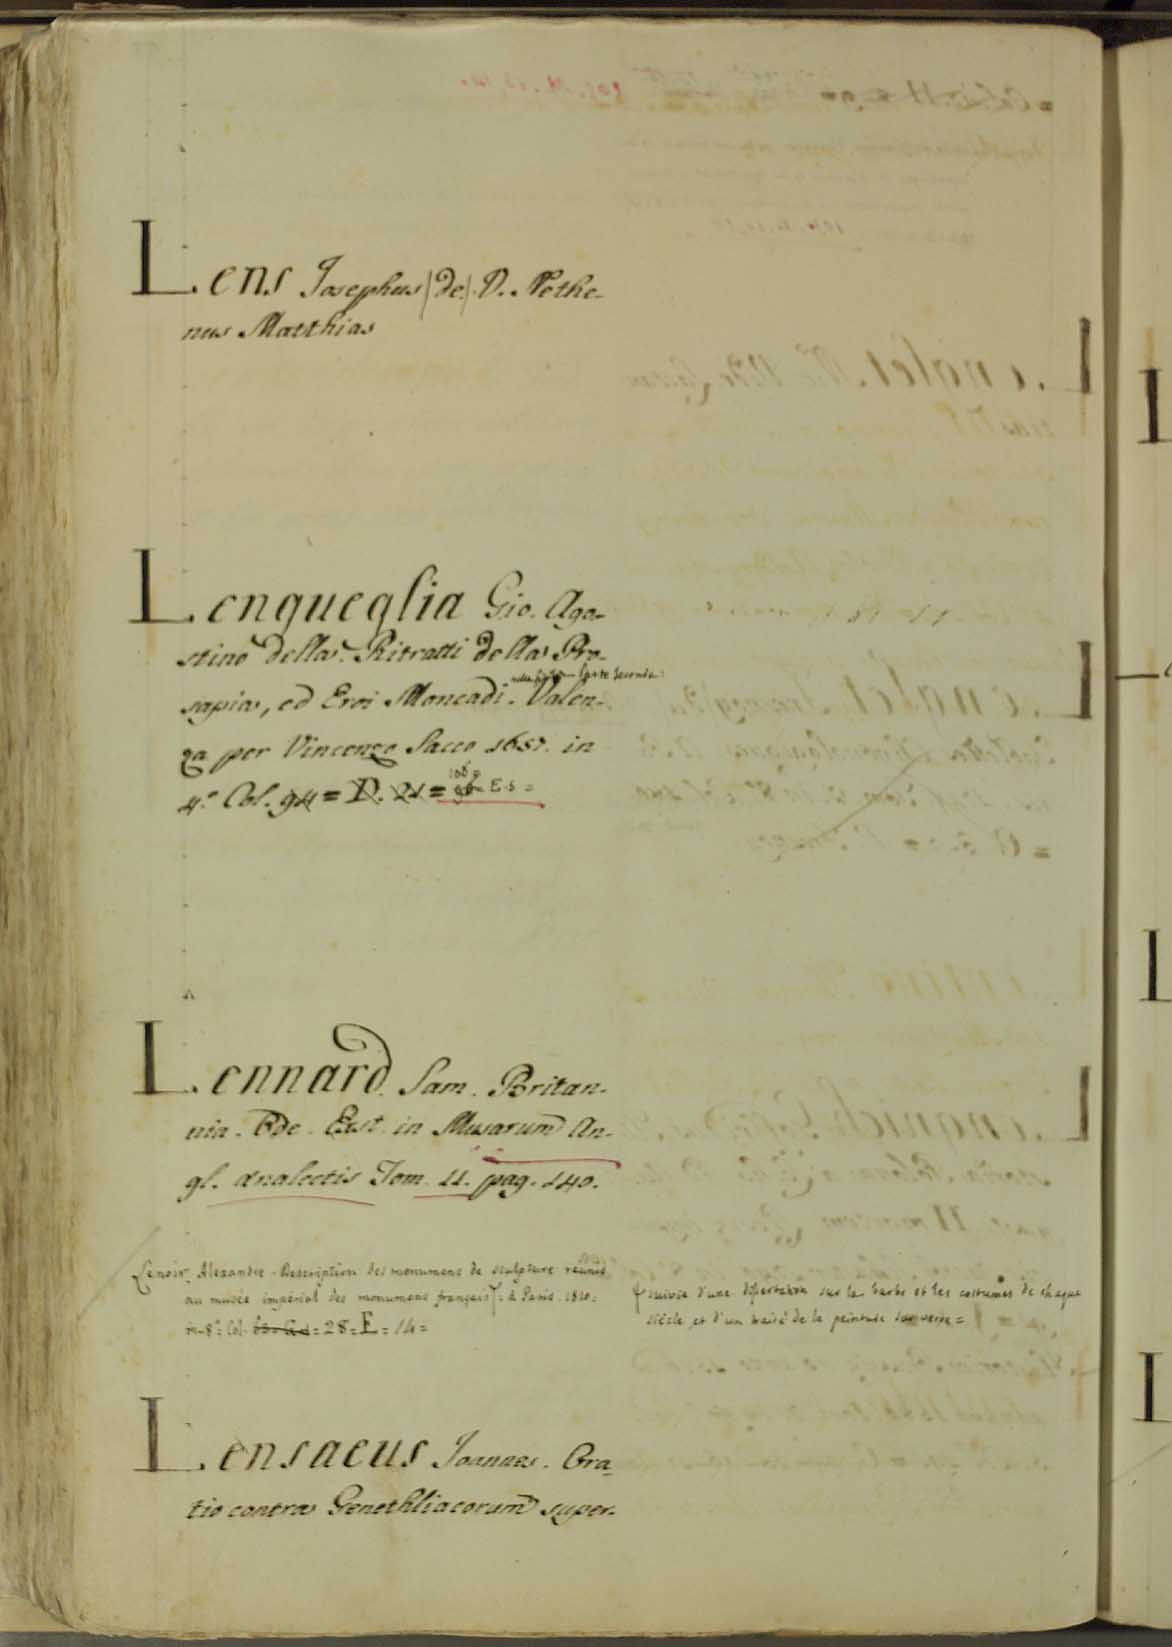 Lens Josephus (de) V. Nethe-
nus Matthias
Lengueglia Gio. Ago-
stino della. Ritratti della Pro-
sapia, ed Eroi Moncadi. Valen-
Parte seconda
za per Vincenzo Sacco 1657. in
4.° Col. 94 = D. 21 = E. 5 =
Lennard Sam. Britan-
nia. Ode. Ext. in Musarum An-
gl. Analectis Tom. II. pag. 140.
Lenoir, Alexandre - Description des monumens de sculpture réunis
au musée impérial des monumens français = à Paris 1810 =
in-8.° Col. = 28 = E = 14 =
suivie d'une dissertation sur la barbe et les costumes de chaque
siècle, et d'un traité de la peinture sur verre =
Lensaeus Joannes. Ora-
tio contra Genethliacorum super-